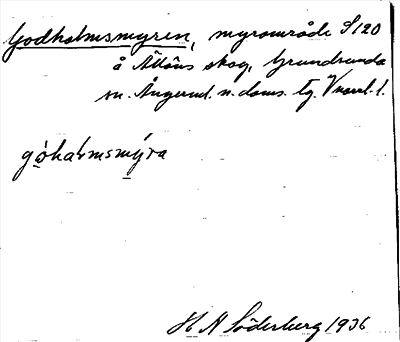 Godholmsmyren, myrområde S120
å Ällöns skog, Grundsunda
sn. Ångerml. n. doms. tg. Vnorrl. l.
góhaḷmsmýra
H N Söderberg 1936